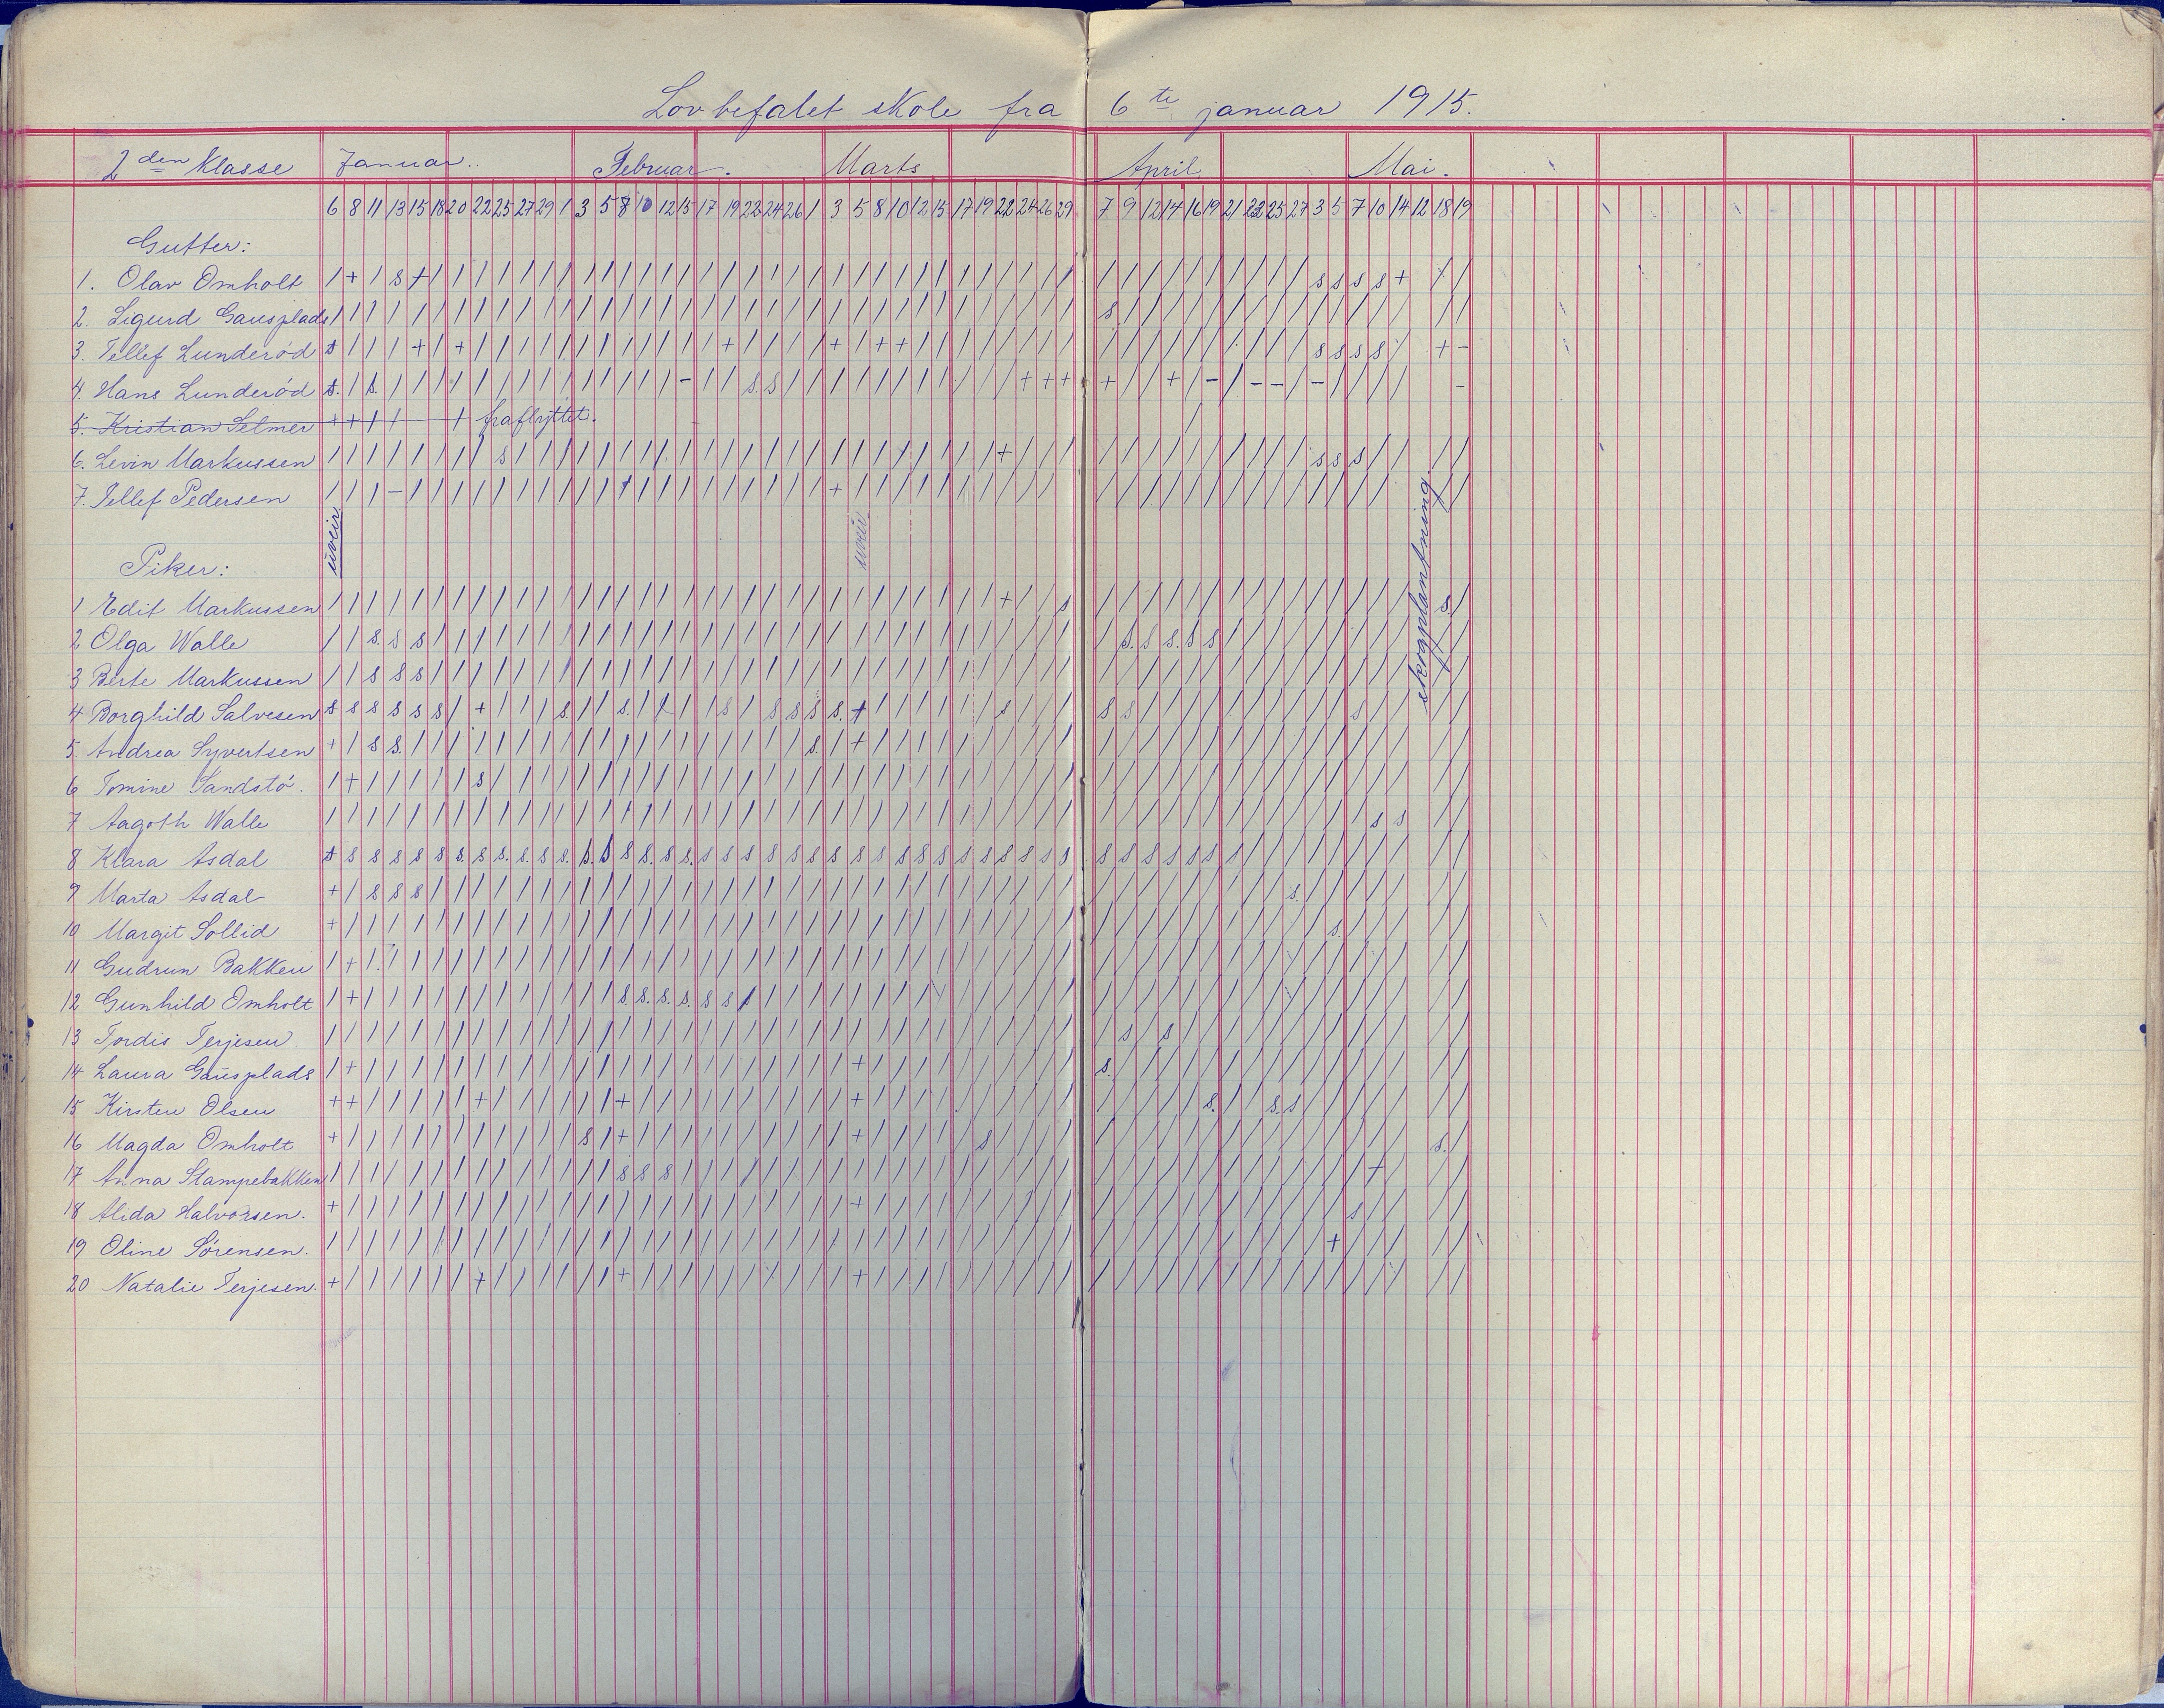 Lovbefalet skole fra 6te januar 1915.
2den Klasse Januar. Februar. Marts April Mai.
6 8 11 13 15 18 20 22 25 27 29 1 3 5 8 10 12 15 17 19 22 24 26 1 3 5 8 10 12 15 17 19 22 24 26 29 7 9 12 14 16 19 21 22 25 27 3 5 7 10 14 12 18 19
Gutter:
1. Olav Omholt
2. Sigurd Gausplads
3. Tellef Lunderød
4. Hans Lunderød
5. Kristian Selmer fraflyttet.
6. Levin Markussen
7. Tellef Pedersen
uveir
uveir
skogplantning
Piker:
1 Edit Markussen
2 Olga Walle
3 Berte Markussen
4 Borghild Salvesen
5. Andrea Syvertsen
6 Tomine Sandstø.
7 Aagoth Walle
8 Klara Asdal
9 Marta Asdal
10 Margit Sollid
11 Gudrun Bakken
12 Gunhild Omholt
13 Tordis Terjesen
14 Laura Gausplads
15 Kirsten Olsen
16 Magda Omholt
17 Anna Stampebakken
18 Alida Halvorsen.
19 Oline Sørensen.
20 Natalie Terjesen.